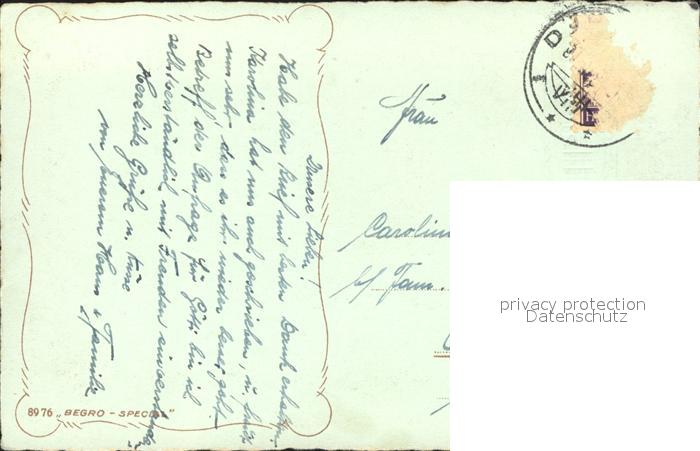 Unsere Lieben!
Habe den Brief mit bestem Dank erhalten,
Karolina hat uns auch geschrieben, u. freut
uns sehr, dass es ihr wieder besser geht.
Betreff der Anfrage für Göti bin ich
selbstverständlich mit Freuden einverstanden
Herzliche Grüße u. Küsse
von eurem Hans u. Familie
Frau
Carolin
b/ Fam.
8976 „BEGRO - SPECIAL"
privacy protection
Datenschutz